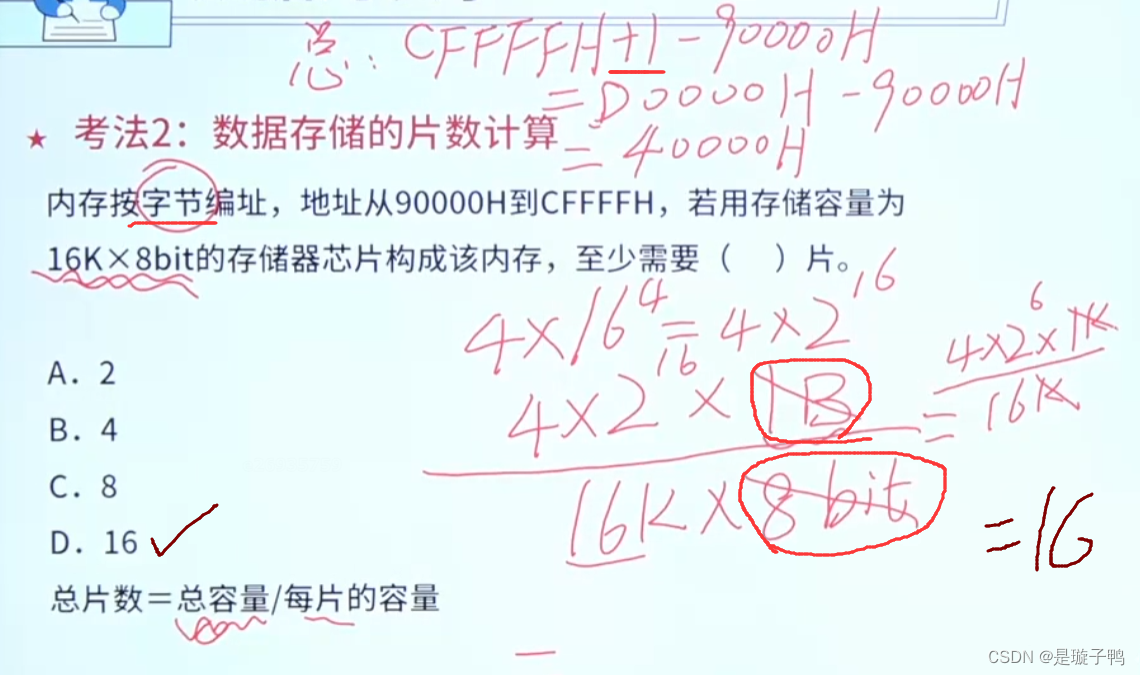 总：CFFFFH+1-90000H
=D0000H-90000H
=40000H
★ 考法2：数据存储的片数计算
内存按字节编址，地址从90000H到CFFFFH，若用存储容量为
16K×8bit的存储器芯片构成该内存，至少需要（ ）片。
4×16⁴=4×2¹⁶
4×2¹⁶×1B
16K×8bit
=
4×2⁶×1K
16K
=16
A．2
B．4
C．8
D．16 ✓
总片数＝总容量/每片的容量
CSDN @是璇子鸭